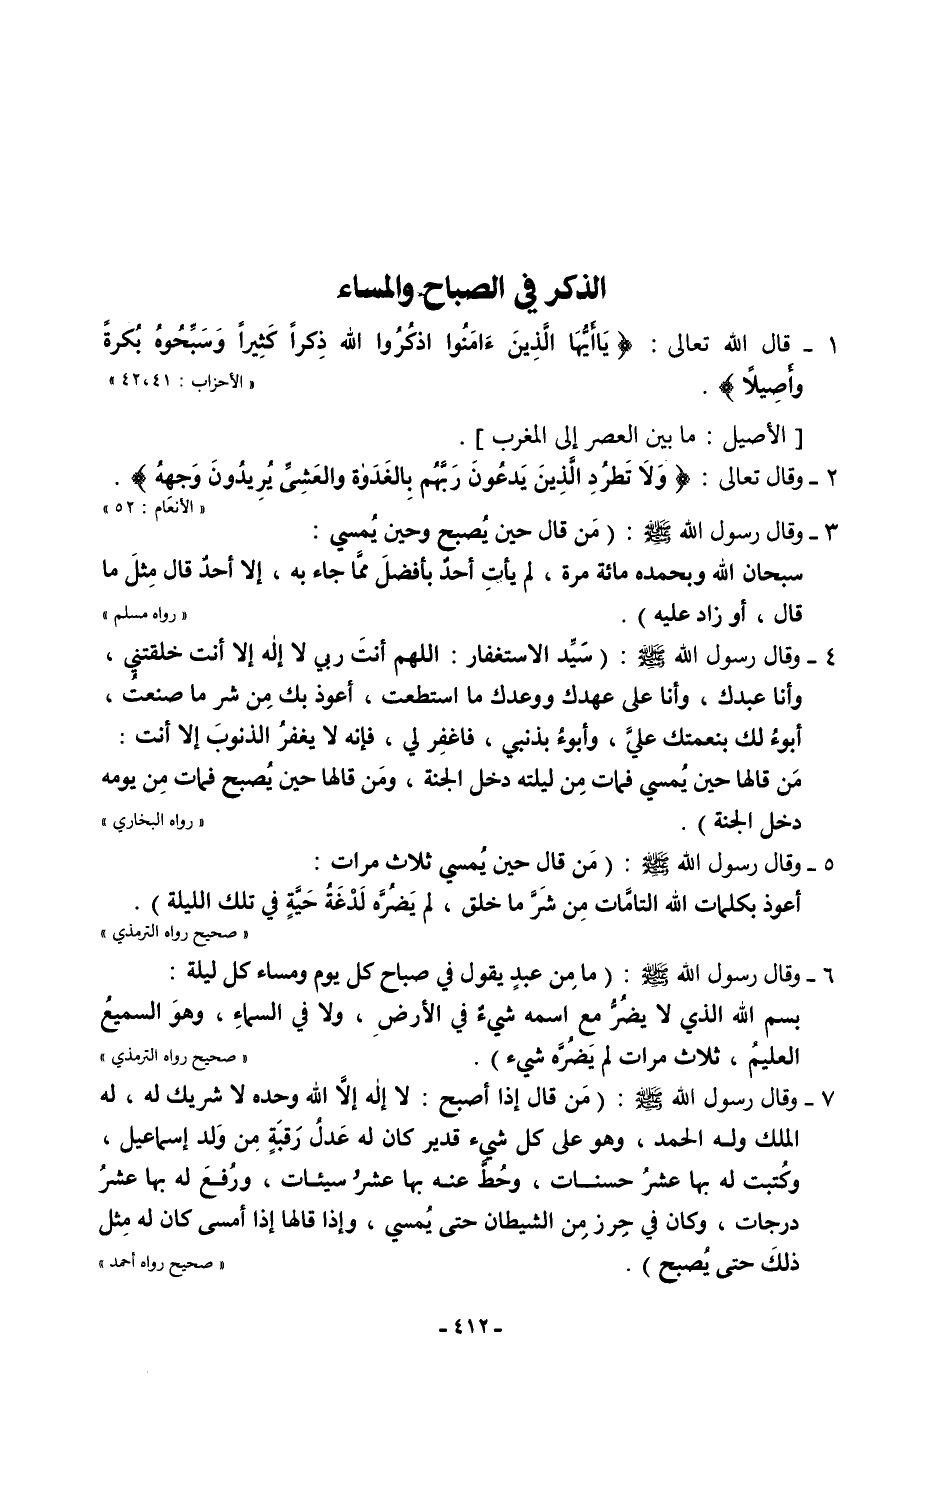 الذكر في الصباح والمساء
١ ـ قال الله تعالى : ﴿ يَاأَيُّهَا الَّذِينَ ءَامَنُوا اذكُرُوا الله ذِكراً كَثِيراً وَسَبِّحُوهُ بُكرةً
وأَصِيلًا ﴾ . « الأحزاب : ٤٢،٤١ »
[ الأصيل : ما بين العصر إلى المغرب ] .
٢ ـ وقال تعالى : ﴿ وَلَا تَطرُدِ الَّذِينَ يَدعُونَ رَبَّهُم بِالغَدَوٰة والعَشِىِّ يُرِيدُونَ وَجهِهُ ﴾ .
« الأنعَام : ٥٢ »
٣ ـ وقال رسول الله ﷺ : ( مَن قال حين يُصبح وحين يُمسي :
سبحان الله وبحمده مائة مرة ، لم يأتِ أحدٌ بأفضلَ ممَّا جاء به ، إلا أحدٌ قال مِثلَ ما
قال ، أو زاد عليه ) . « رواه مسلم »
٤ ـ وقال رسول الله ﷺ : ( سَيِّد الاستغفار : اللهم أنتَ ربي لا إلٰه إلا أنت خلقتني ،
وأنا عبدك ، وأنا على عهدك ووعدك ما استطعت ، أعوذ بك مِن شر ما صنعتُ ،
أبوءُ لك بنعمتك عليَّ ، وأبوءُ بذنبي ، فاغفِر لي ، فإنه لا يغفرُ الذنوبَ إلا أنت :
مَن قالها حين يُمسي فمات مِن ليلته دخل الجنة ، ومَن قالها حين يُصبح فمات مِن يومه
دخل الجنة ) . « رواه البخاري »
٥ ـ وقال رسول الله ﷺ : ( مَن قال حين يُمسي ثلاث مرات :
أعوذ بكلمات الله التامَّات مِن شَرَّ ما خلق ، لم يَضُرَّه لَدْغَةُ حَيَّةٍ في تلك الليلة ) .
« صحيح رواه الترمذي »
٦ ـ وقال رسول الله ﷺ : ( ما مِن عبدٍ يقول في صباح كل يوم ومساء كل ليلة :
بسم الله الذي لا يضُرُّ مع اسمه شيءٌ في الأرض ، ولا في السماءِ ، وهوَ السميعُ
العليمُ ، ثلاث مرات لم يَضُرَّه شيء ) . « صحيح رواه الترمذي »
٧ ـ وقال رسول الله ﷺ : ( مَن قال إذا أصبح : لا إلٰه إلَّا الله وحده لا شريك له ، له
الملك وله الحمد ، وهو على كل شيء قدير كان له عَدلُ رَقبَةٍ مِن وَلد إسماعيل ،
وكُتبت له بها عشرُ حسنات ، وحُطَّ عنه بها عشرُ سيئات ، ورُفعَ له بها عشرُ
درجات ، وكان في حِرز مِن الشيطان حتى يُمسي ، وإذا قالها إذا أمسى كان له مِثل
ذلكَ حتى يُصبح ) . « صحيح رواه أحمد »
ـ ٤١٢ ـ